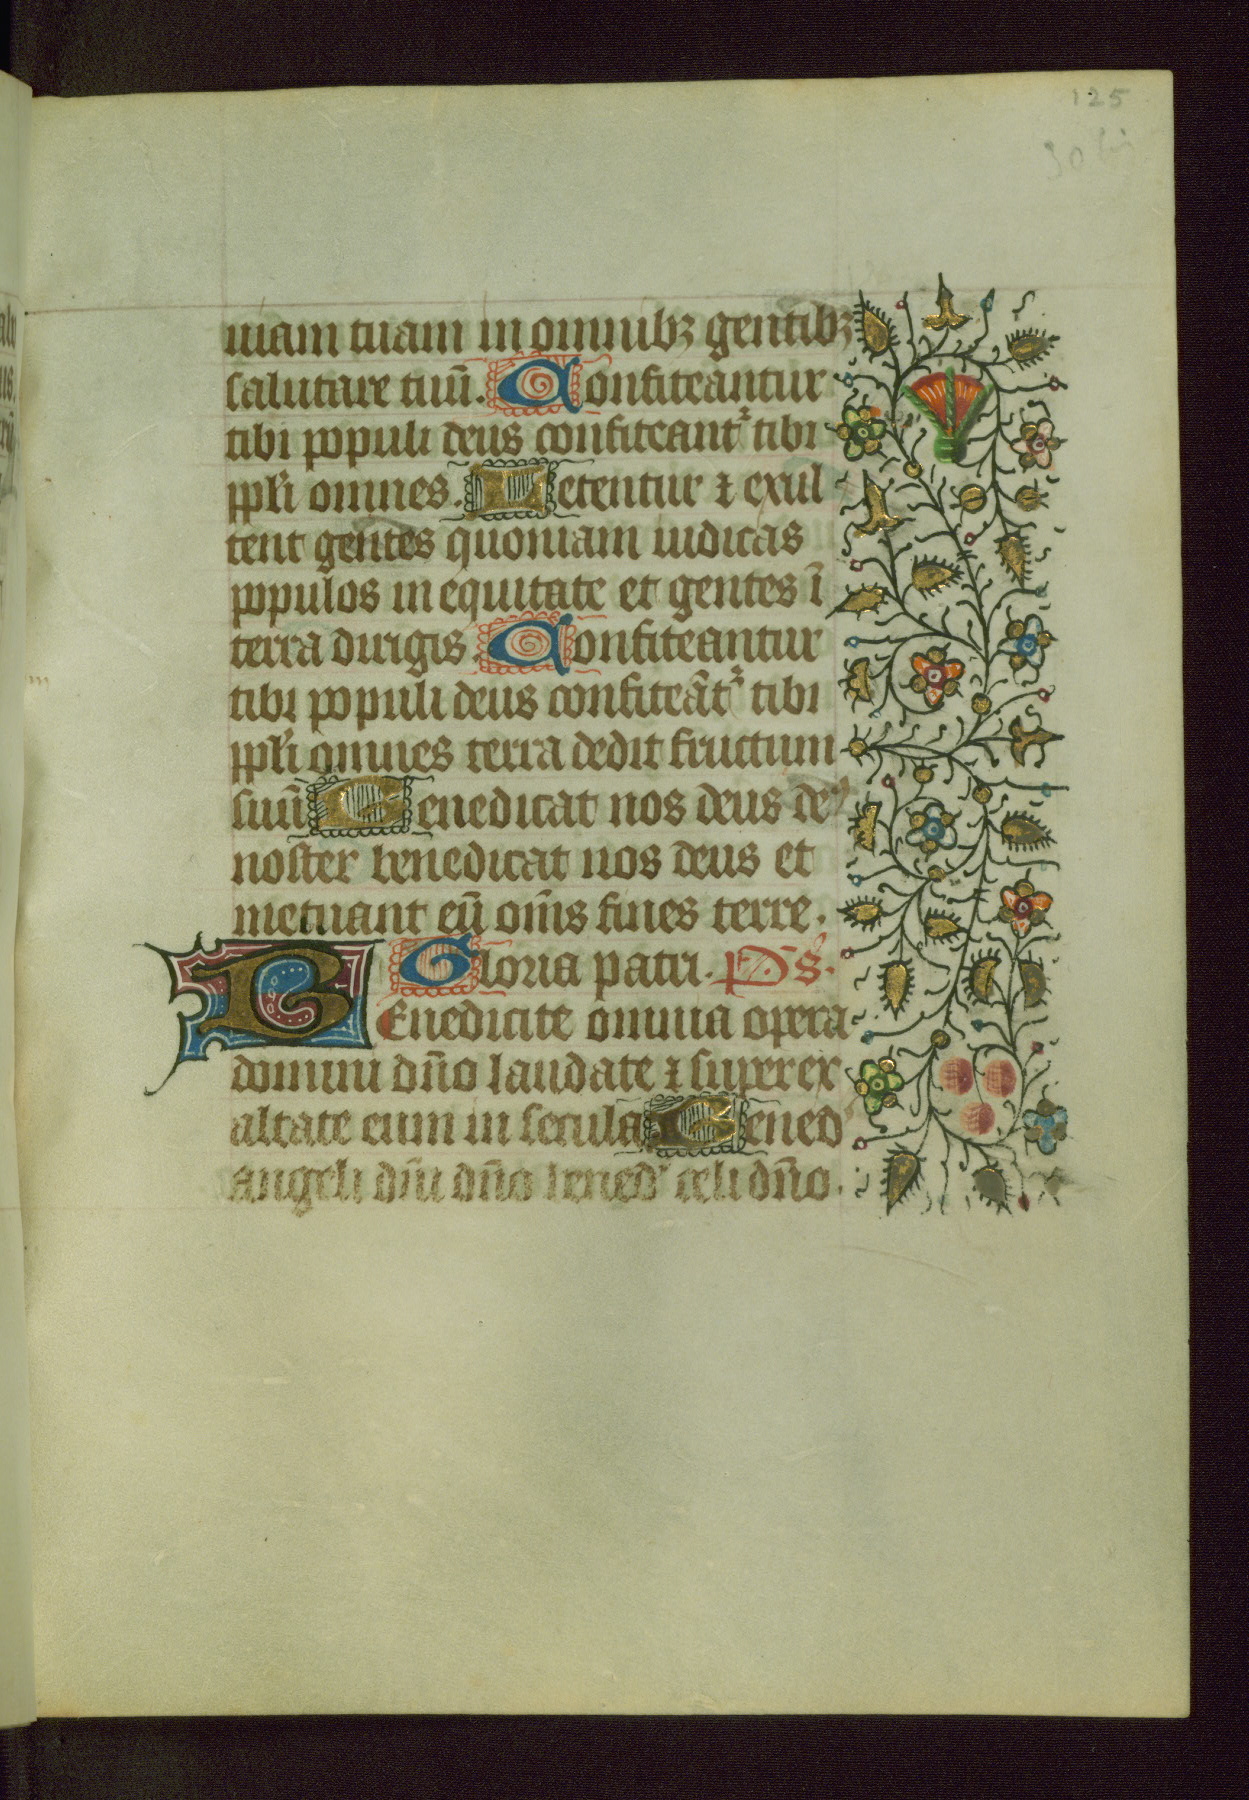 125
30 bis
uiam tuam in omnibꝫ gentibꝫ
salutare tuū. Confiteantur
tibi populi deus confiteantᷣ tibi
ppl̄i omnes. Letentur ⁊ exul
tent gentes quoniam iudicas
populos in equitate et gentes ī
terra dirigis. Confiteantur
tibi populi deus confiteātᷣ tibi
ppl̄i omnes terra dedit fructum
suū Benedicat nos deus deꝰ
noster benedicat nos deus et
metuant eū om̄s fines terre.
Gloria patri. Ps̄.
Benedicite omnia opera
domini dn̄o laudate ⁊ superex
altate eum in secula Bened'
angeli dn̄i dn̄o bened' celi dn̄o.